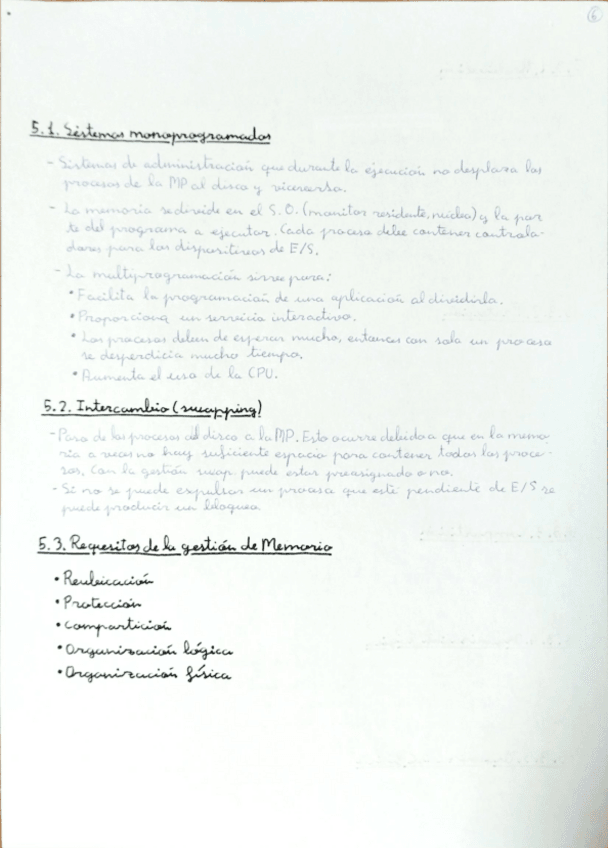 6
5.1. Sistemas monoprogramados
- Sistemas de administración que durante la ejecución no desplaza los
procesos de la MP al disco y viceversa.
- La memoria se divide en el S.O. (monitor residente, núcleo) y la par-
te del programa a ejecutar. Cada proceso debe contener controla-
dores para los dispositivos de E/S.
- La multiprogramación sirve para:
• Facilita la programación de una aplicación al dividirla.
• Proporciona un servicio interactivo.
• Los procesos deben de esperar mucho, entonces con solo un proceso
se desperdicia mucho tiempo.
• Aumenta el uso de la CPU.
5.2. Intercambio (swapping)
- Paso de los procesos del disco a la MP. Esto ocurre debido a que en la memo-
ria a veces no hay suficiente espacio para contener todos los proce-
sos. Con la gestión swap puede estar preasignado o no.
- Si no se puede expulsar un proceso que esté pendiente de E/S se
puede producir un bloqueo.
5.3. Requisitos de la gestión de Memoria
• Reubicación
• Protección
• Compartición
• Organización lógica
• Organización física